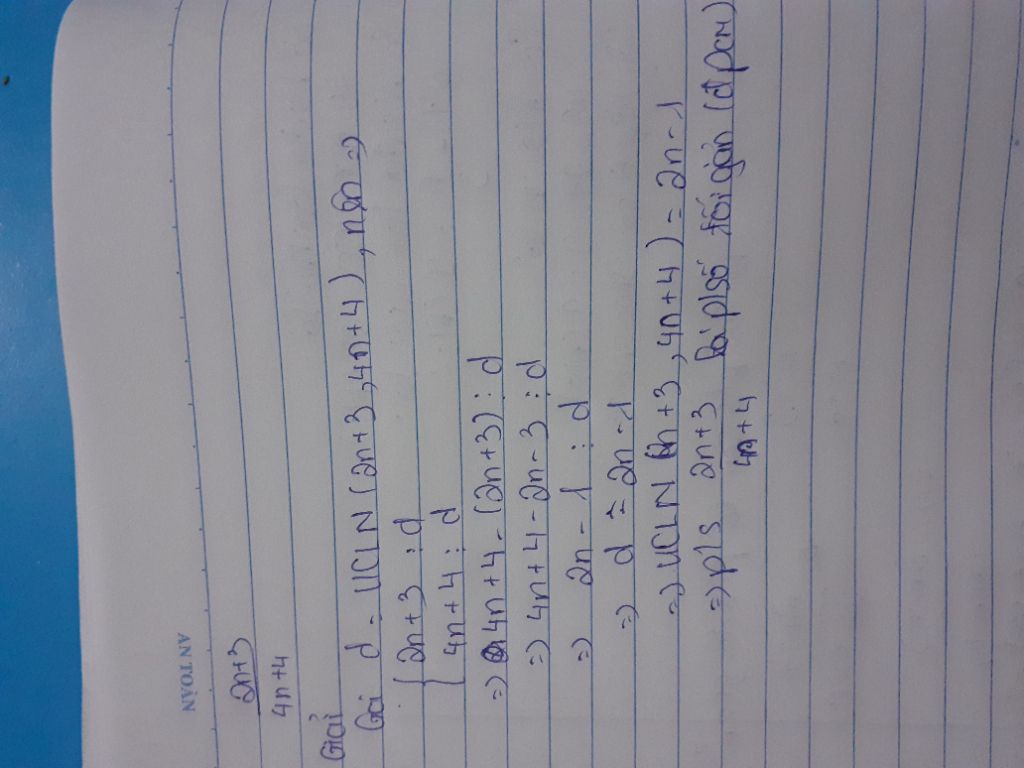 AN TOÀN
2n+3
4n+4
Giải
Gọi d = UCLN (2n+3, 4n+4), nên =>
{ 2n+3 ⋮ d
4n+4 ⋮ d
=> 4n+4 - (2n+3) ⋮ d
=> 4n+4 - 2n - 3 ⋮ d
=> 2n - 1 ⋮ d
=> d = 2n-1
=> UCLN (2n+3, 4n+4) = 2n-1
=> p/s 2n+3 là p/số tối giản (đpcm)
4n+4